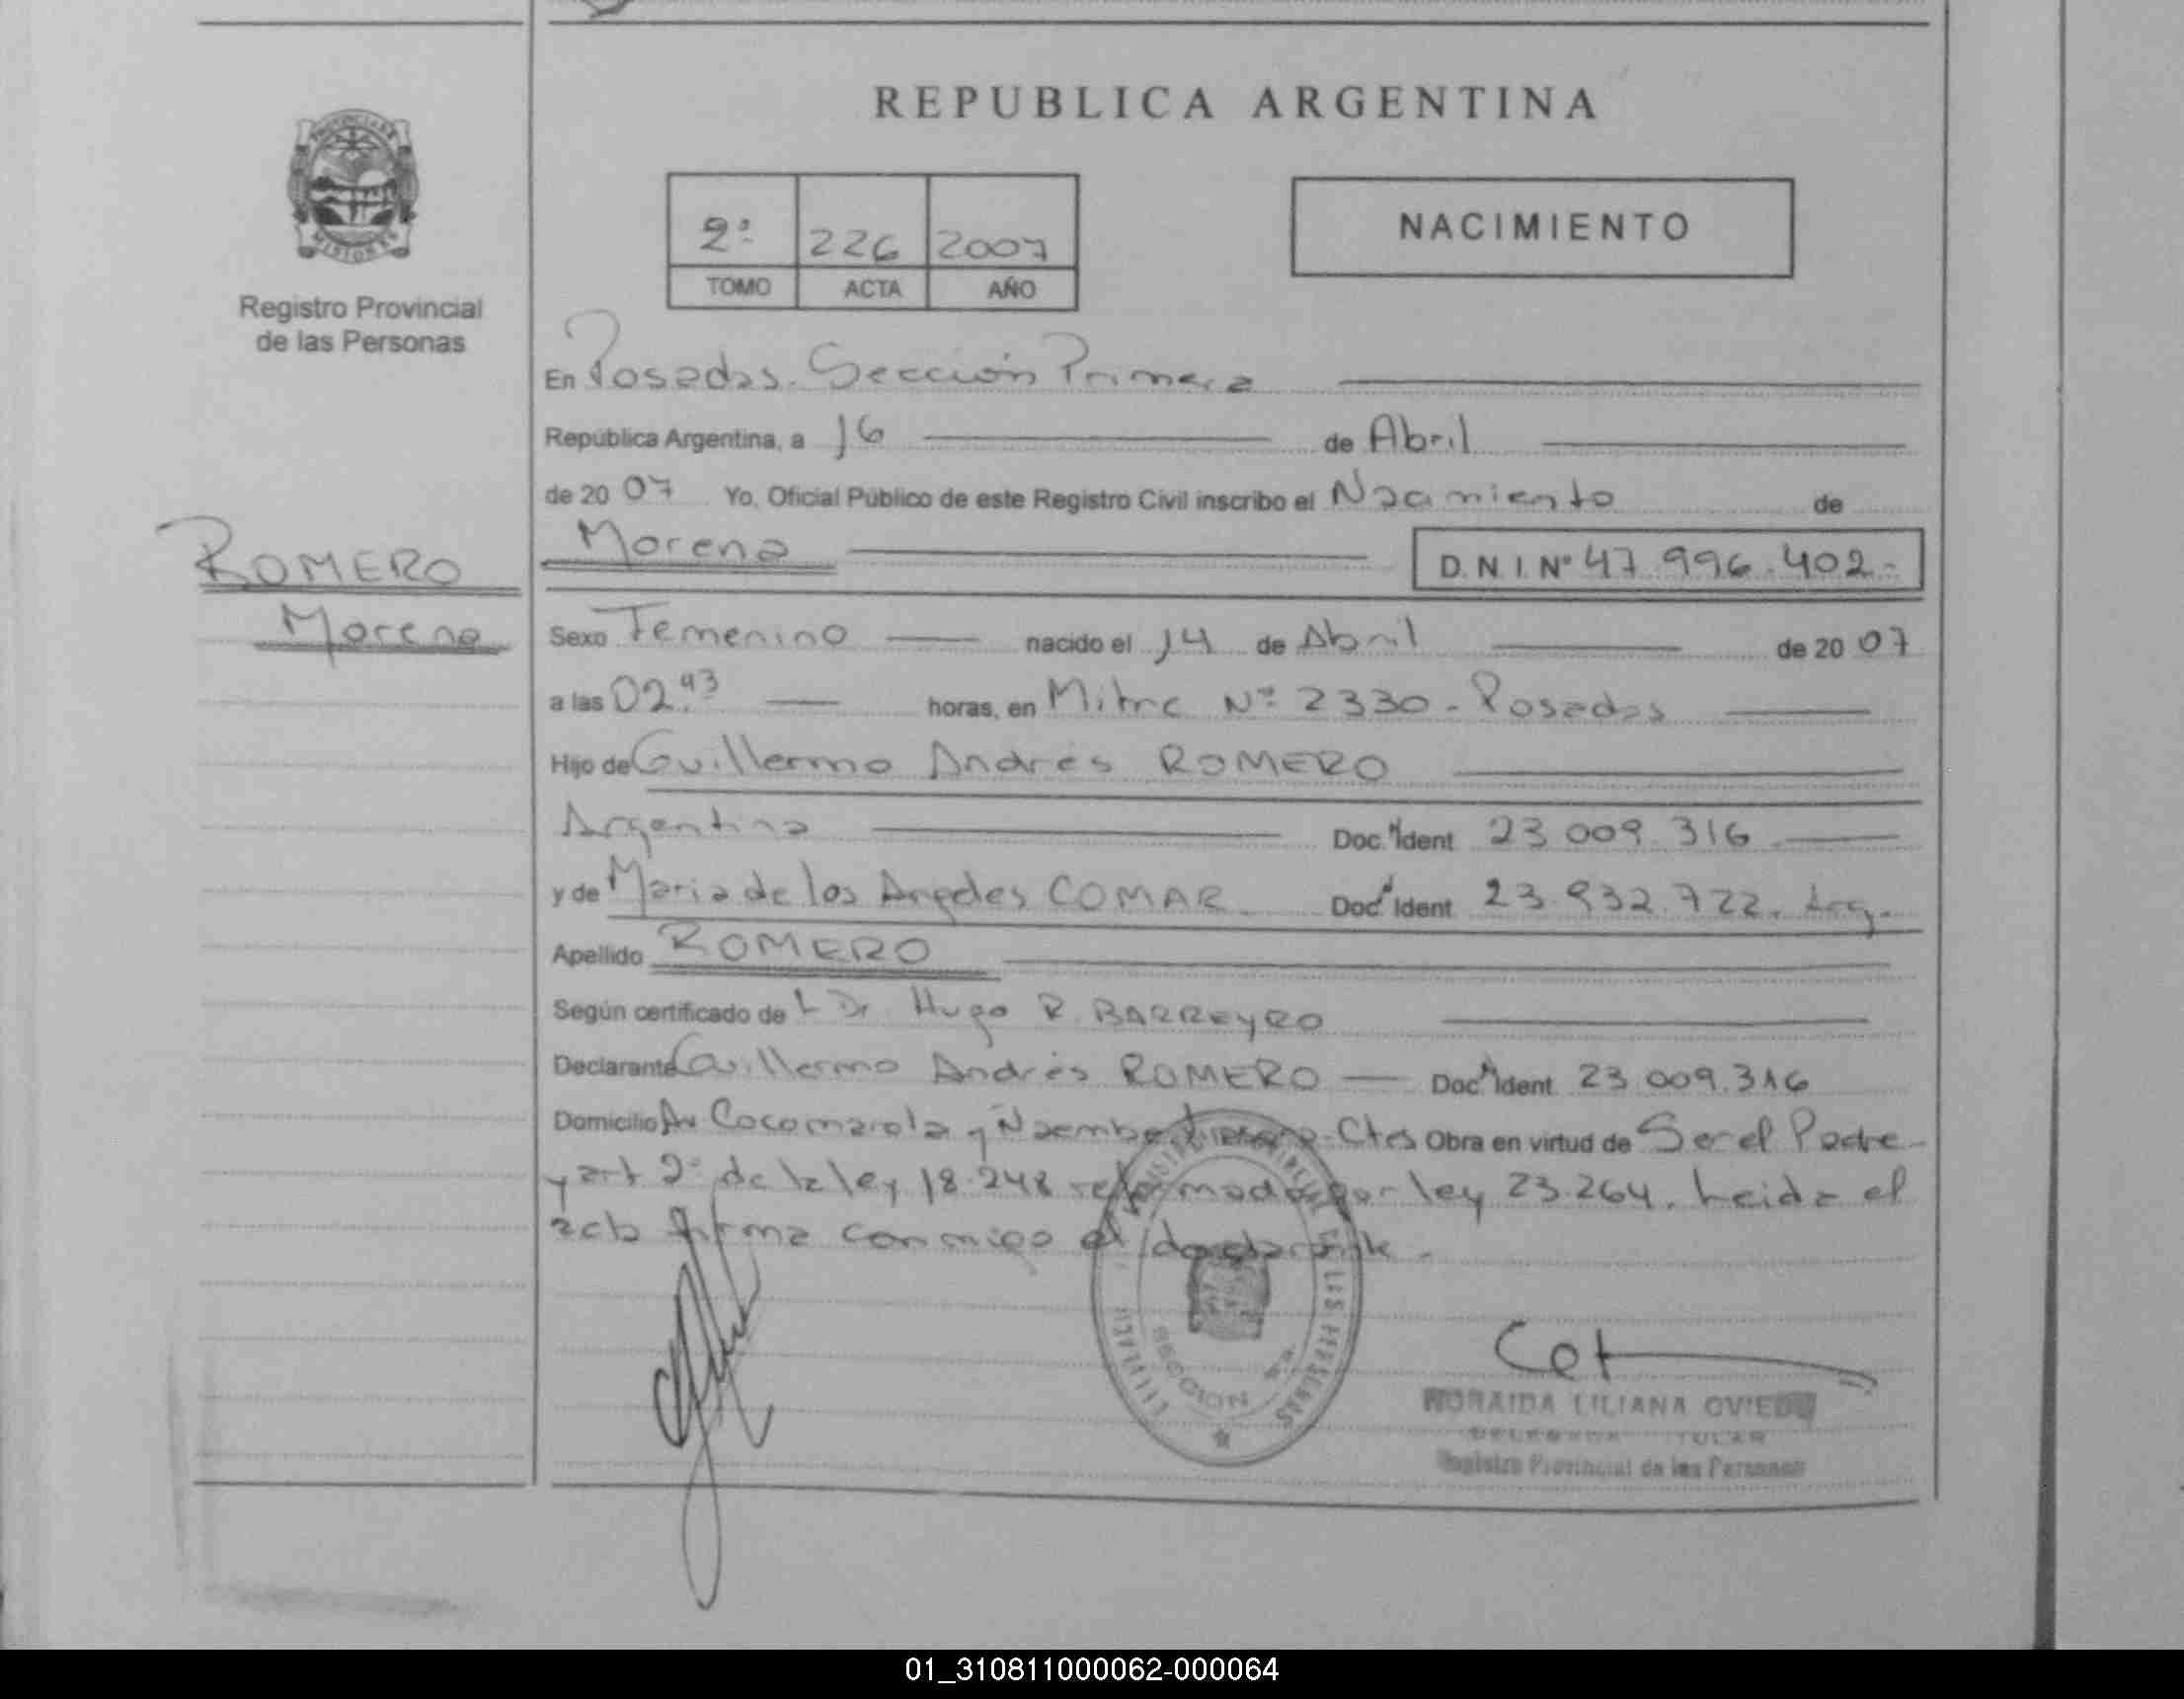 REPUBLICA ARGENTINA
PROVINCIA DE
MISIONES
Registro Provincial
de las Personas
2º 226 2007
TOMO ACTA AÑO
NACIMIENTO
En Posadas. Sección Primera
República Argentina, a 16 de Abril
de 20 07 Yo, Oficial Público de este Registro Civil inscribo el Nacimiento de
Morena D.N.I. Nº 47.996.402.-
ROMERO
Morena
Sexo Femenino nacido el 14 de Abril de 20 07
a las 02.43 horas, en Mitre Nº 2330 - Posadas
Hijo de Guillermo Andrés ROMERO
Argentina Doc. Ident 23.009.316
y de Maria de los Angeles COMAR Doc. Ident 23.932.722. Arg.
Apellido ROMERO
Según certificado de L Dr. Hugo R. BARREYRO
Declarante Guillermo Andrés ROMERO Doc. Ident. 23.009.316
Domicilio Av Cocomarola y Ctes Obra en virtud de Ser el Padre
y art 2º de la ley 18.248 reformado por ley 23.264. Leida el
acta firma conmigo el declarante.
SECCION
NORAIDA LILIANA OVIEDO
DELEGADA TITULAR
Registro Provincial de las Personas
01_310811000062-000064